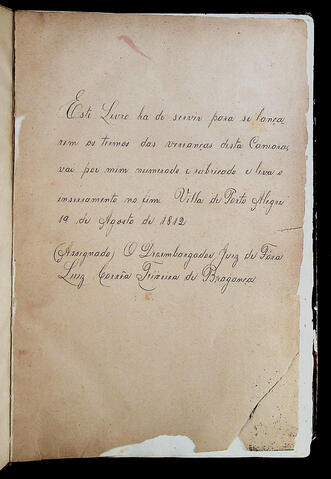 Este Livro ha de servir para se lança
rem os termos das vereanças desta Camara,
vae por mim numerado e rubricado e leva o
enserramento no fim. Villa de Porto Alegre
19 de Agosto de 1812
(Assignado) O Dezembargador Juiz de Fóra
Luiz Corrêa Teixeira de Bragança